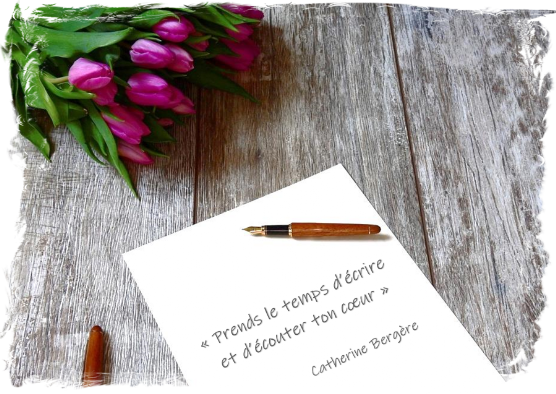 « Prends le temps d'écrire
et d'écouter ton cœur »
Catherine Bergère